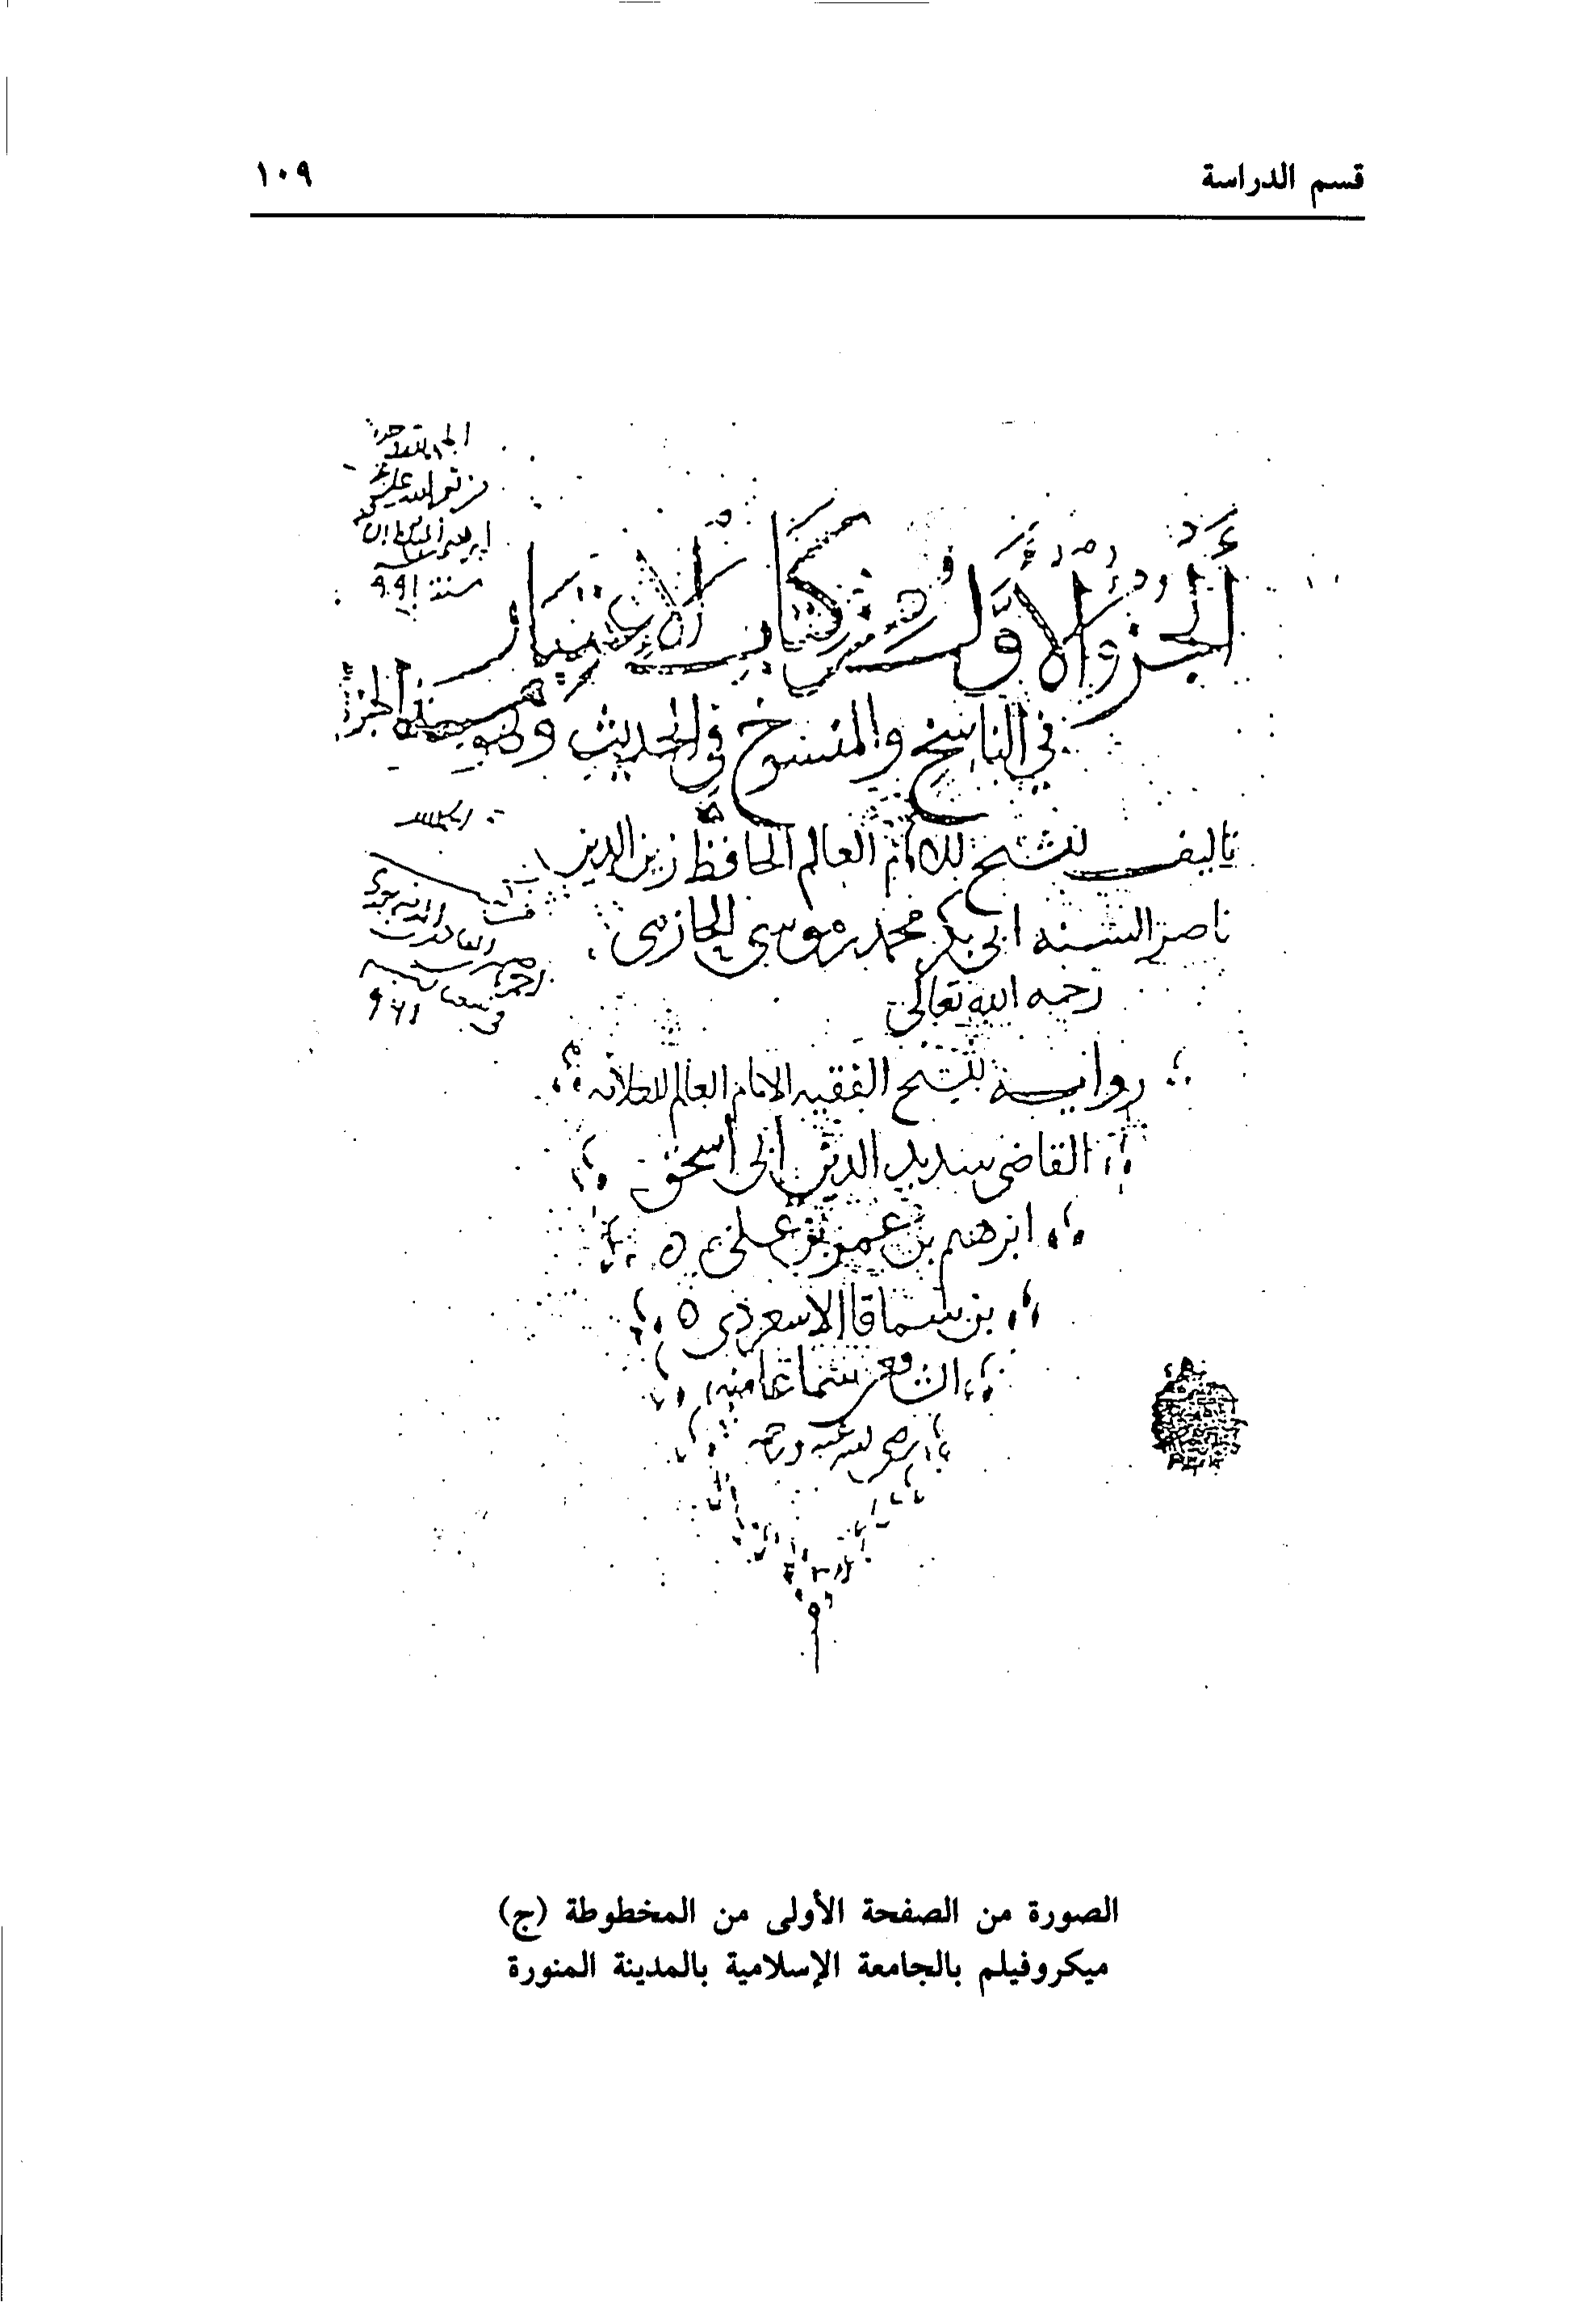 قسم الدراسة
١٠٩
الجزو الأول من كتاب الاعتبار
في الناسخ والمنسوخ في الحديث وهو سبعة اجزا
تاليف الشيخ الامام العالم الحافظ زين الدين
ناصر السنه ابي بكر محمد بن موسى الحازمي
رحمه الله تعالى
رواية الشيخ الفقيه الامام العالم العلامه
القاضي سديد الدين ابي اسحق
ابرهيم بن عمر بن علي
بن سماقا الاسعردي
الشافعي سماعا منه
رضي الله عنه ورحمه
سنة ٩٩١
٩٦١
الصورة من الصفحة الأولى من المخطوطة (ج)
ميكروفيلم بالجامعة الإسلامية بالمدينة المنورة